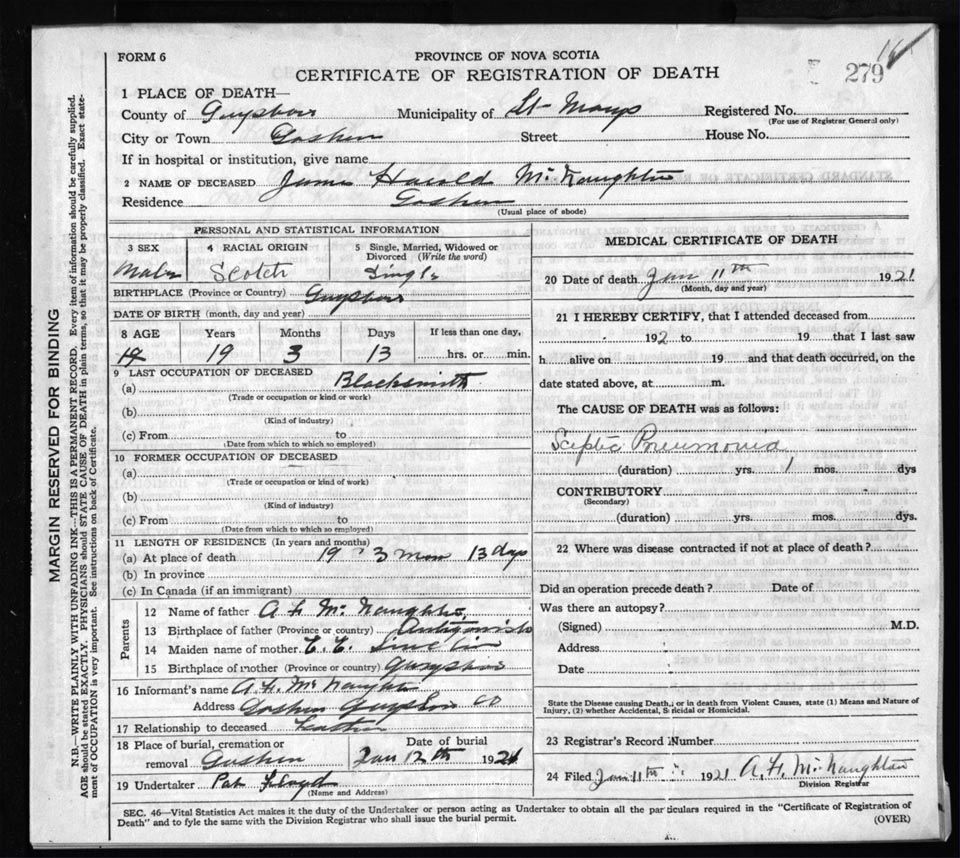 FORM 6
PROVINCE OF NOVA SCOTIA
CERTIFICATE OF REGISTRATION OF DEATH
279
1 PLACE OF DEATH—
County of Guysboro Municipality of St Marys Registered No.
(For use of Registrar General only)
City or Town Goshen Street House No.
If in hospital or institution, give name
2 NAME OF DECEASED James Harold McNaughton
Residence Goshen
(Usual place of abode)
PERSONAL AND STATISTICAL INFORMATION
3 SEX 4 RACIAL ORIGIN 5 Single, Married, Widowed or Divorced (Write the word)
Male Scotch Single
BIRTHPLACE (Province or Country) Guysboro
DATE OF BIRTH (month, day and year)
8 AGE Years Months Days If less than one day,
19 3 13 hrs. or min.
9 LAST OCCUPATION OF DECEASED
(a) Blacksmith
(Trade or occupation or kind or work)
(b)
(Kind of industry)
(c) From to
(Date from which to which so employed)
10 FORMER OCCUPATION OF DECEASED
(a)
(Trade or occupation or kind of work)
(b)
(Kind of industry)
(c) From to
(Date from which to which so employed)
11 LENGTH OF RESIDENCE (In years and months)
(a) At place of death 19 3 mon 13 days
(b) In province
(c) In Canada (if an immigrant)
Parents
12 Name of father A F McNaughton
13 Birthplace of father (Province or country) Antigonish
14 Maiden name of mother
15 Birthplace of mother (Province or country) Guysboro
16 Informant's name A F McNaughton
Address Goshen Guysboro Co
17 Relationship to deceased Father
18 Place of burial, cremation or removal Goshen Date of burial Jan 12th 1921
19 Undertaker Pat Floyd
(Name and Address)
MEDICAL CERTIFICATE OF DEATH
20 Date of death Jan 11th 1921
(Month, day and year)
21 I HEREBY CERTIFY, that I attended deceased from
192 to 19 that I last saw
h alive on 19 and that death occurred, on the
date stated above, at m.
The CAUSE OF DEATH was as follows:
Sceptic Pneumonia
(duration) yrs. 1 mos. dys
CONTRIBUTORY
(Secondary)
(duration) yrs. mos. dys.
22 Where was disease contracted if not at place of death?
Did an operation precede death? Date of
Was there an autopsy?
(Signed) M.D.
Address
Date
State the Disease causing Death, or in death from Violent Causes, state (1) Means and Nature of
Injury, (2) whether Accidental, Suicidal or Homicidal.
23 Registrar's Record Number
24 Filed Jan 11th 1921 A F McNaughton
Division Registrar
SEC. 46—Vital Statistics Act makes it the duty of the Undertaker or person acting as Undertaker to obtain all the particulars required in the "Certificate of Registration of
Death" and to fyle the same with the Division Registrar who shall issue the burial permit.
(OVER)
MARGIN RESERVED FOR BINDING
N.B.—WRITE PLAINLY WITH UNFADING INK—THIS IS A PERMANENT RECORD. Every item of information should be carefully supplied.
AGE should be stated EXACTLY. PHYSICIANS should STATE CAUSE OF DEATH in plain terms, so that it may be properly classified. Exact state-
ment of OCCUPATION is very important. See instructions on back of Certificate.